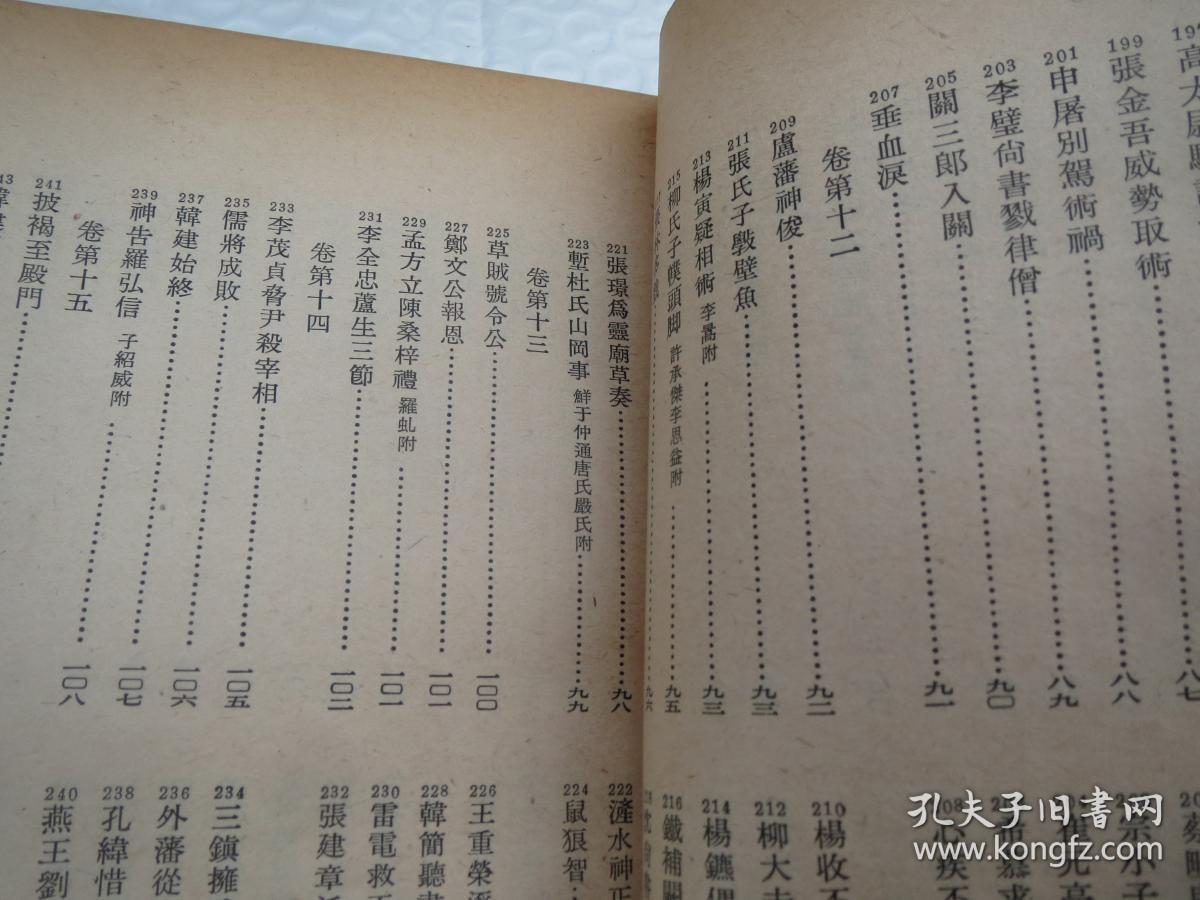 199 張金吾威勢取術 八八
201 申屠別駕術禍 八九
203 李璧尙書戮律僧 九〇
205 關三郎入關 九一
207 垂血淚
卷第十二
209 盧藩神俊 九二
211 張氏子斅壁魚 九三
213 楊寅疑相術 李暠附 九三
215 柳氏子幞頭脚 許承傑李思益附 九五
九六
210 楊收不
212 柳大夫
214 楊鑣偶
216 鐵補闕
221 張璟爲靈廟草奏 九八
223 塹杜氏山岡事 鮮于仲通唐氏嚴氏附 九九
卷第十三
225 草賊號令公 一〇〇
227 鄭文公報恩 一〇一
229 孟方立陳桑梓禮 羅虬附 一〇一
231 李全忠蘆生三節 一〇二
卷第十四
233 李茂貞脅尹殺宰相
235 儒將成敗 一〇五
237 韓建始終 一〇六
239 神告羅弘信 子紹威附 一〇七
卷第十五 
241 披褐至殿門 一〇八
222 滻水神正
224 鼠狼智
226 王重榮
228 韓簡聽書
230 雷電救
232 張建章
234 三鎭擁
236 外藩從
238 孔緯惜
240 燕王劉
孔夫子旧书网
www.kongfz.com